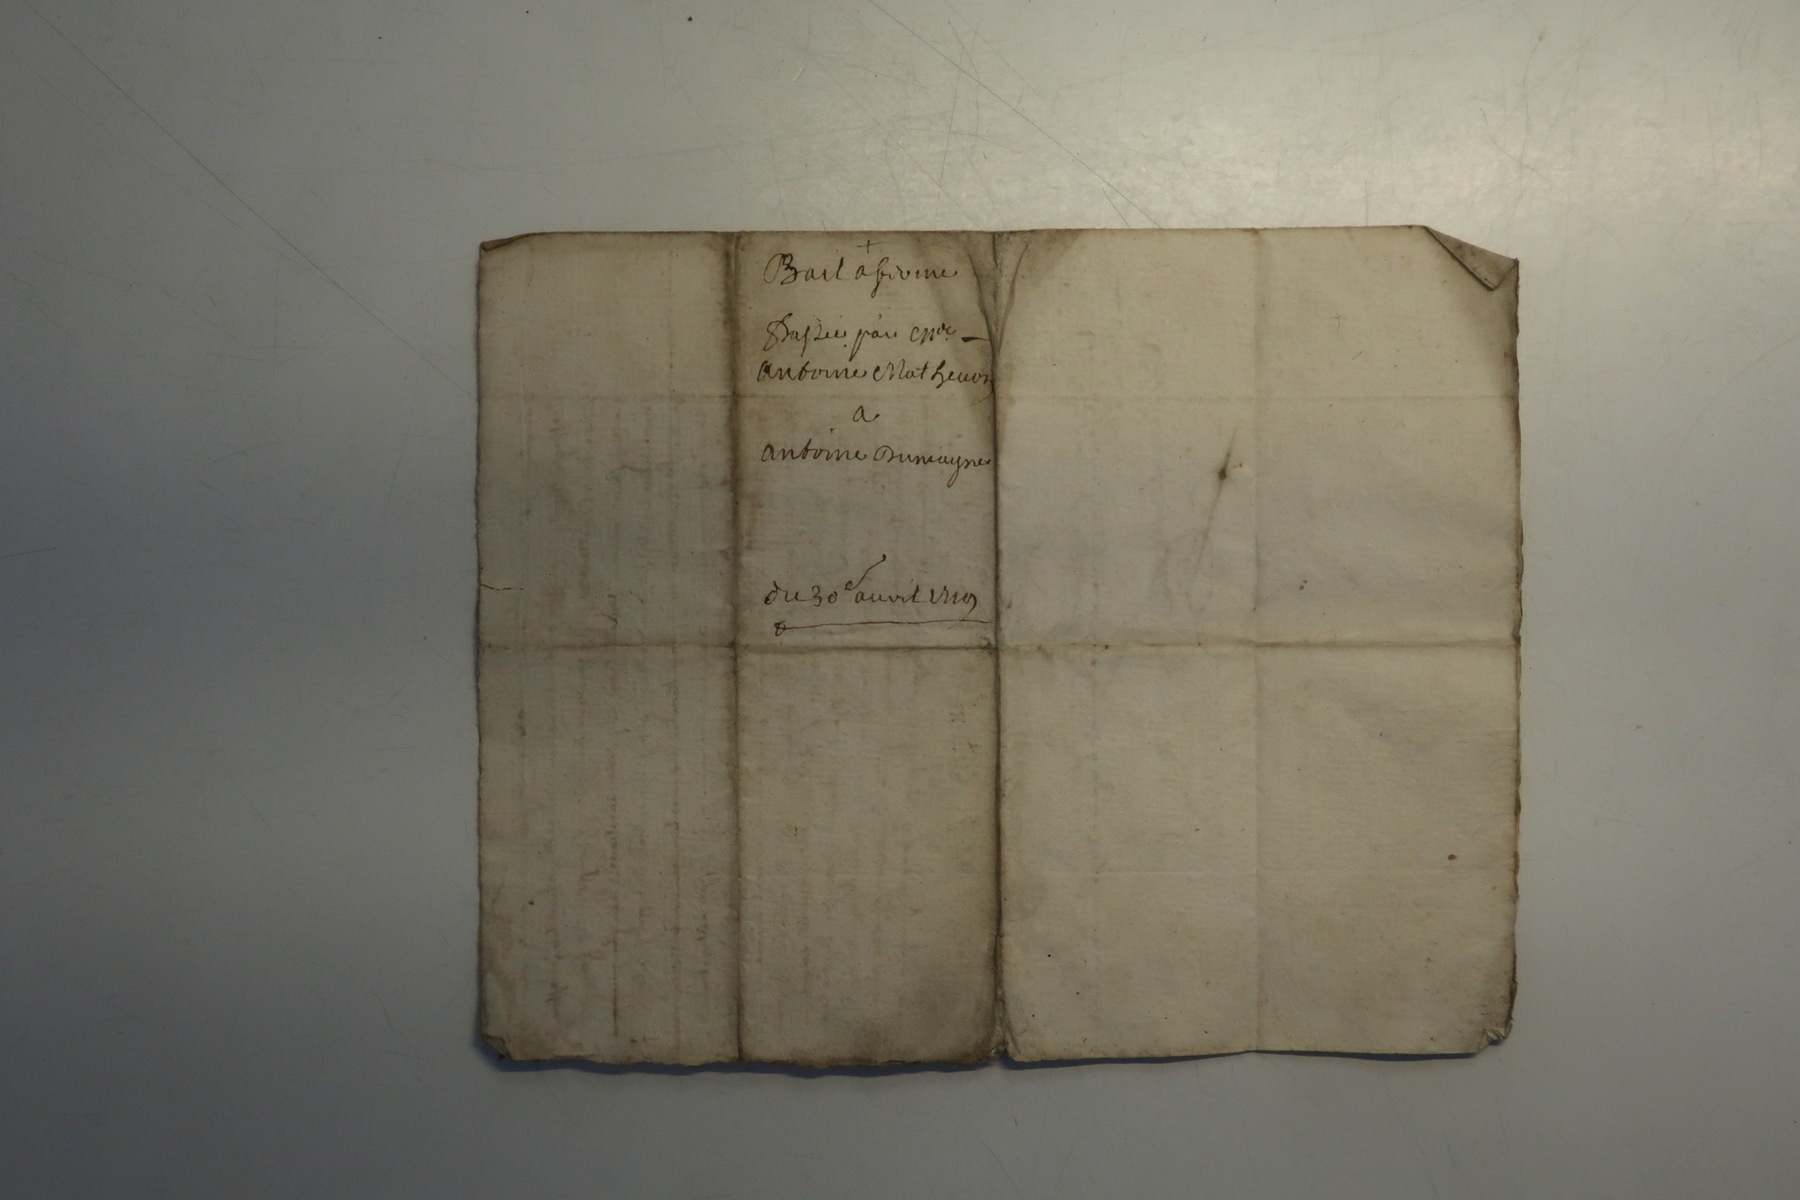 +
Bail a ferme
Passée par Mre
Antoine Mathevon
a
antoine Dumayne
du 30e avril 1719